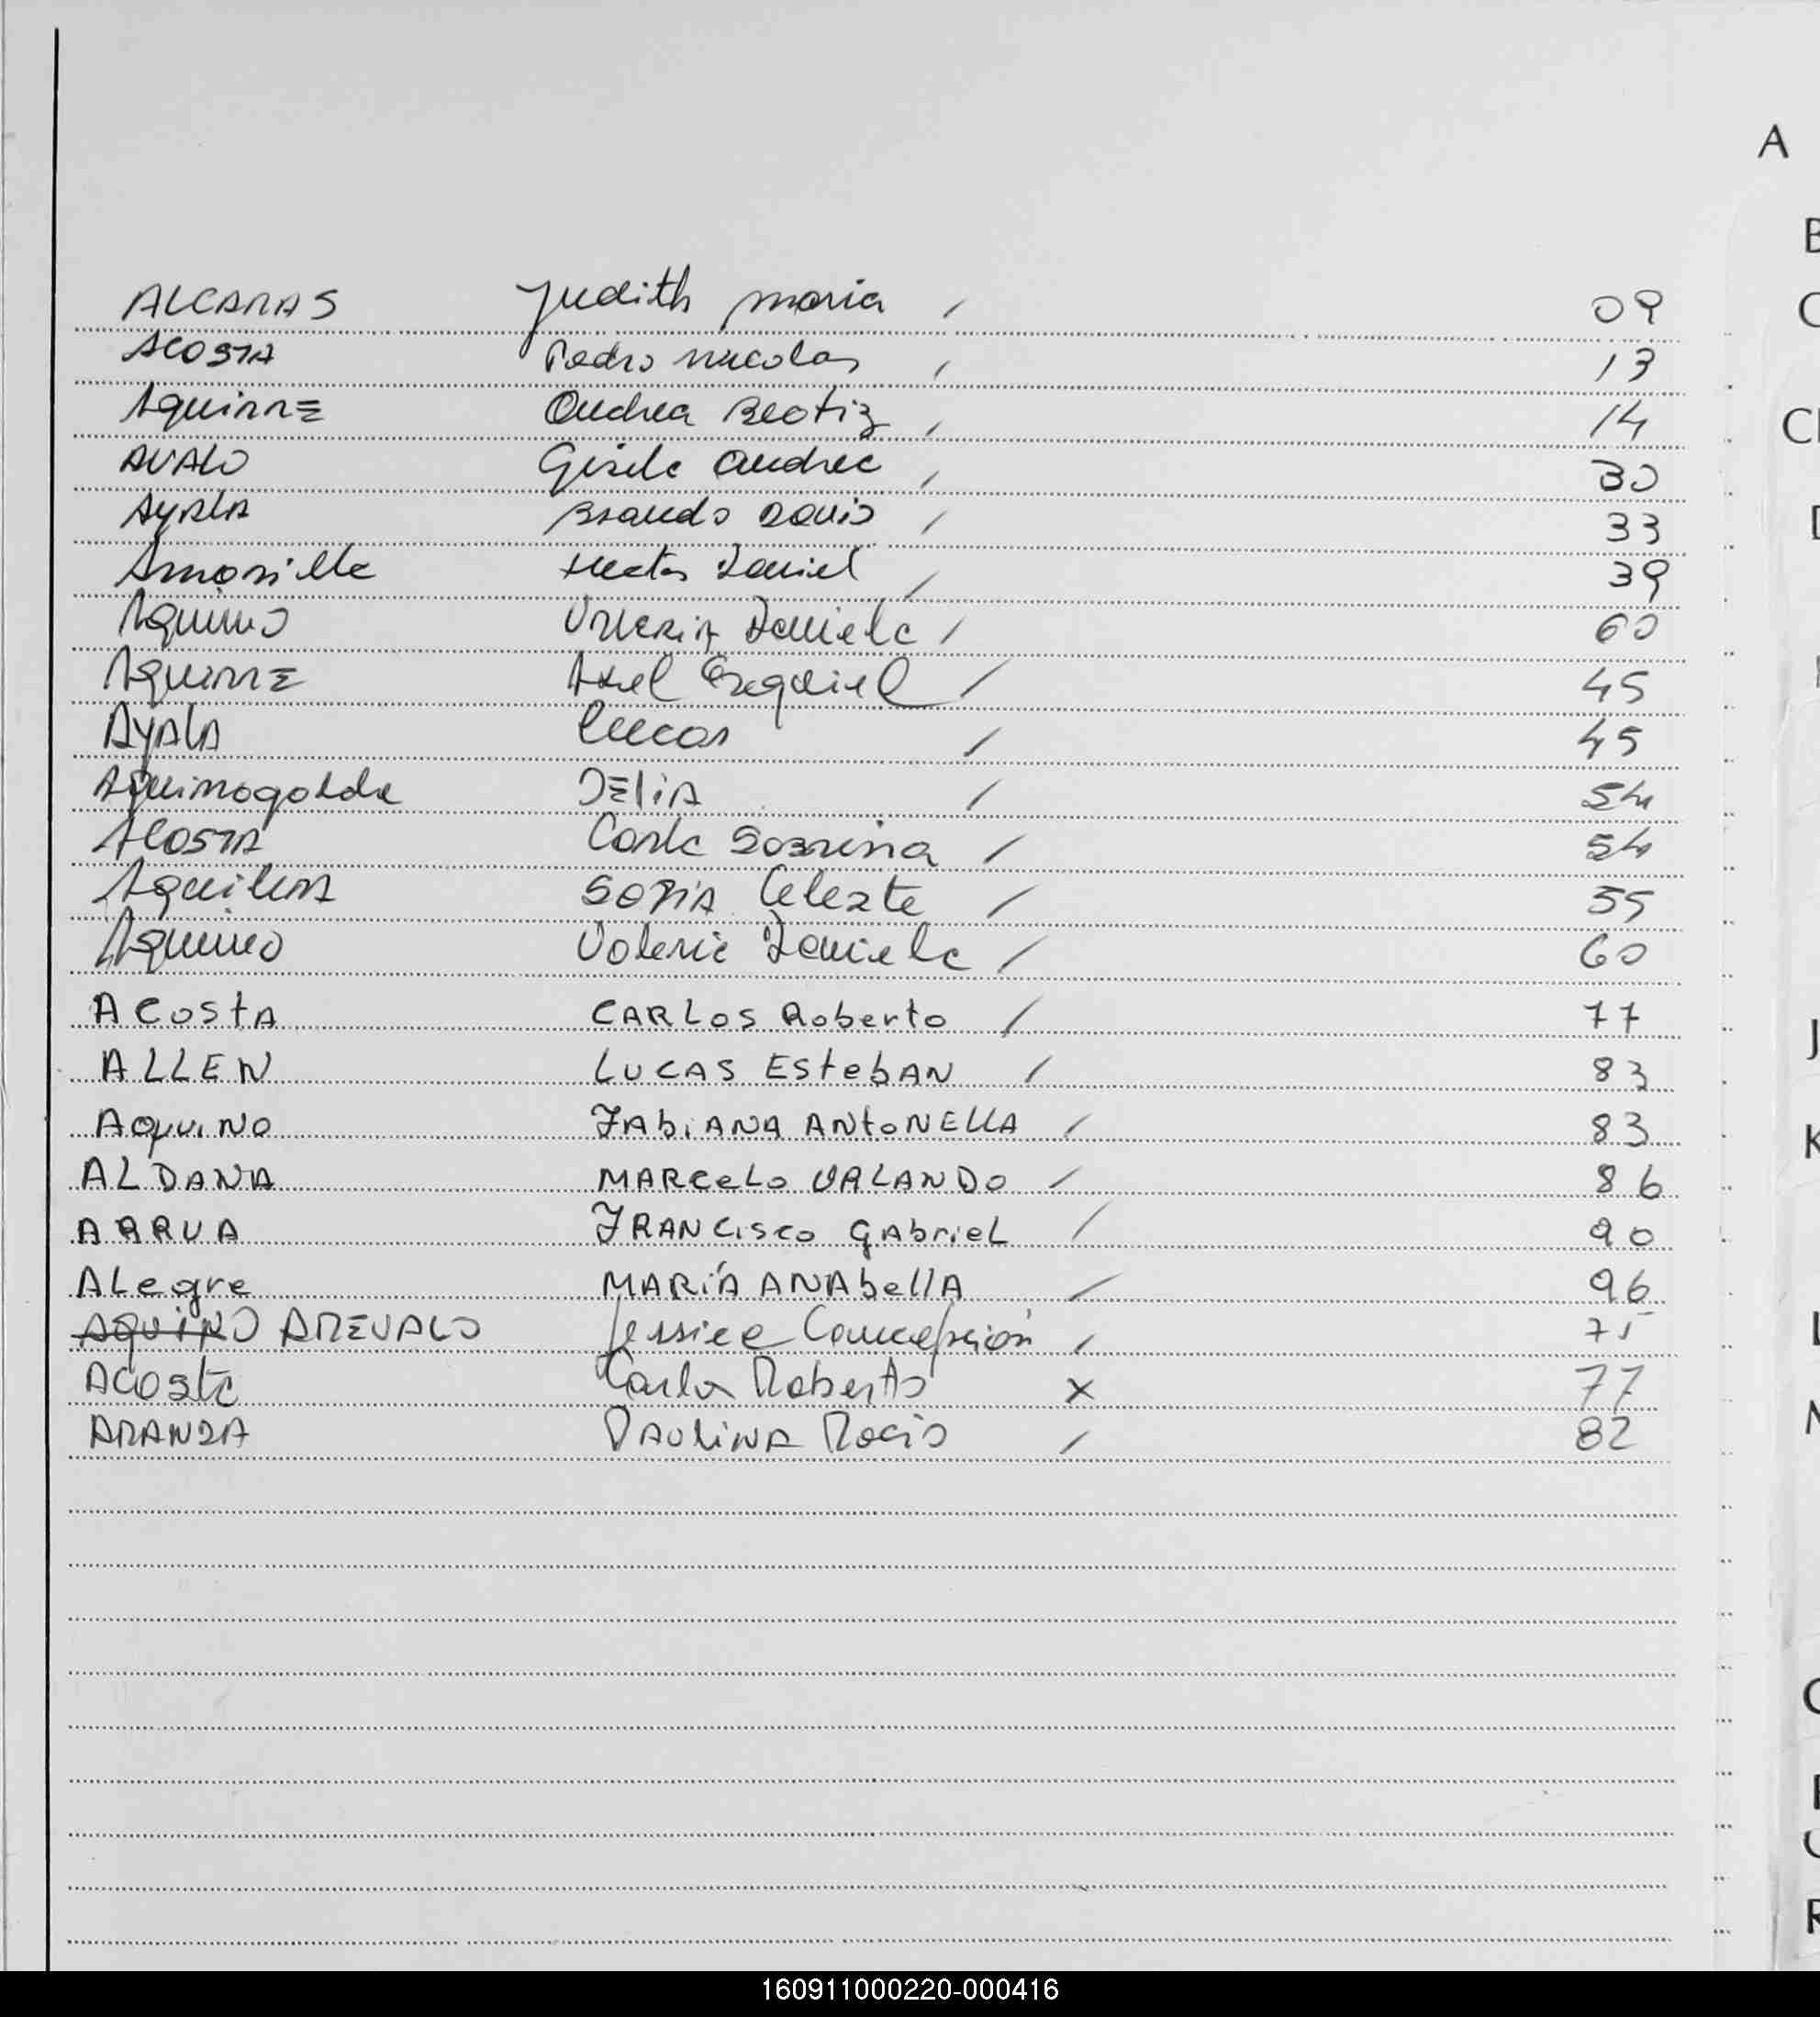 A
B
C
ALCARAS Judith Maria / 09
ACOSTA Pedro Nicolas / 13
Aguirre Andrea Beatiz / 14
CH
AVALO Gisele Andrea / 30
Ayala Brando David / 33
D
Amarilla Hector Daniel / 39
Aquino Valeria Daniela / 60
Aguirre Axel Ezequiel / 45
Ayala Lucas / 45
DELIA / 54
ACOSTA Carla Sabrina / 54
Aguilera SOFIA Celeste / 55
Aquino Valeria Daniela / 60
ACostA CARLos Roberto / 77
J
ALLEN LUCAS EStebAN / 83
Aquino FAbiANA ANtoNELLA / 83
K
ALDANA MARCeLo ORLANDO / 86
ARRUA FRANCisco GAbrieL / 90
ALegre MARÍA ANAbellA / 96
AQUINO AREVALO Jessica Concepción / 75
L
Acosta Carlos Roberto x 77
ARANDA PAULINA Rocio / 82
160911000220-000416